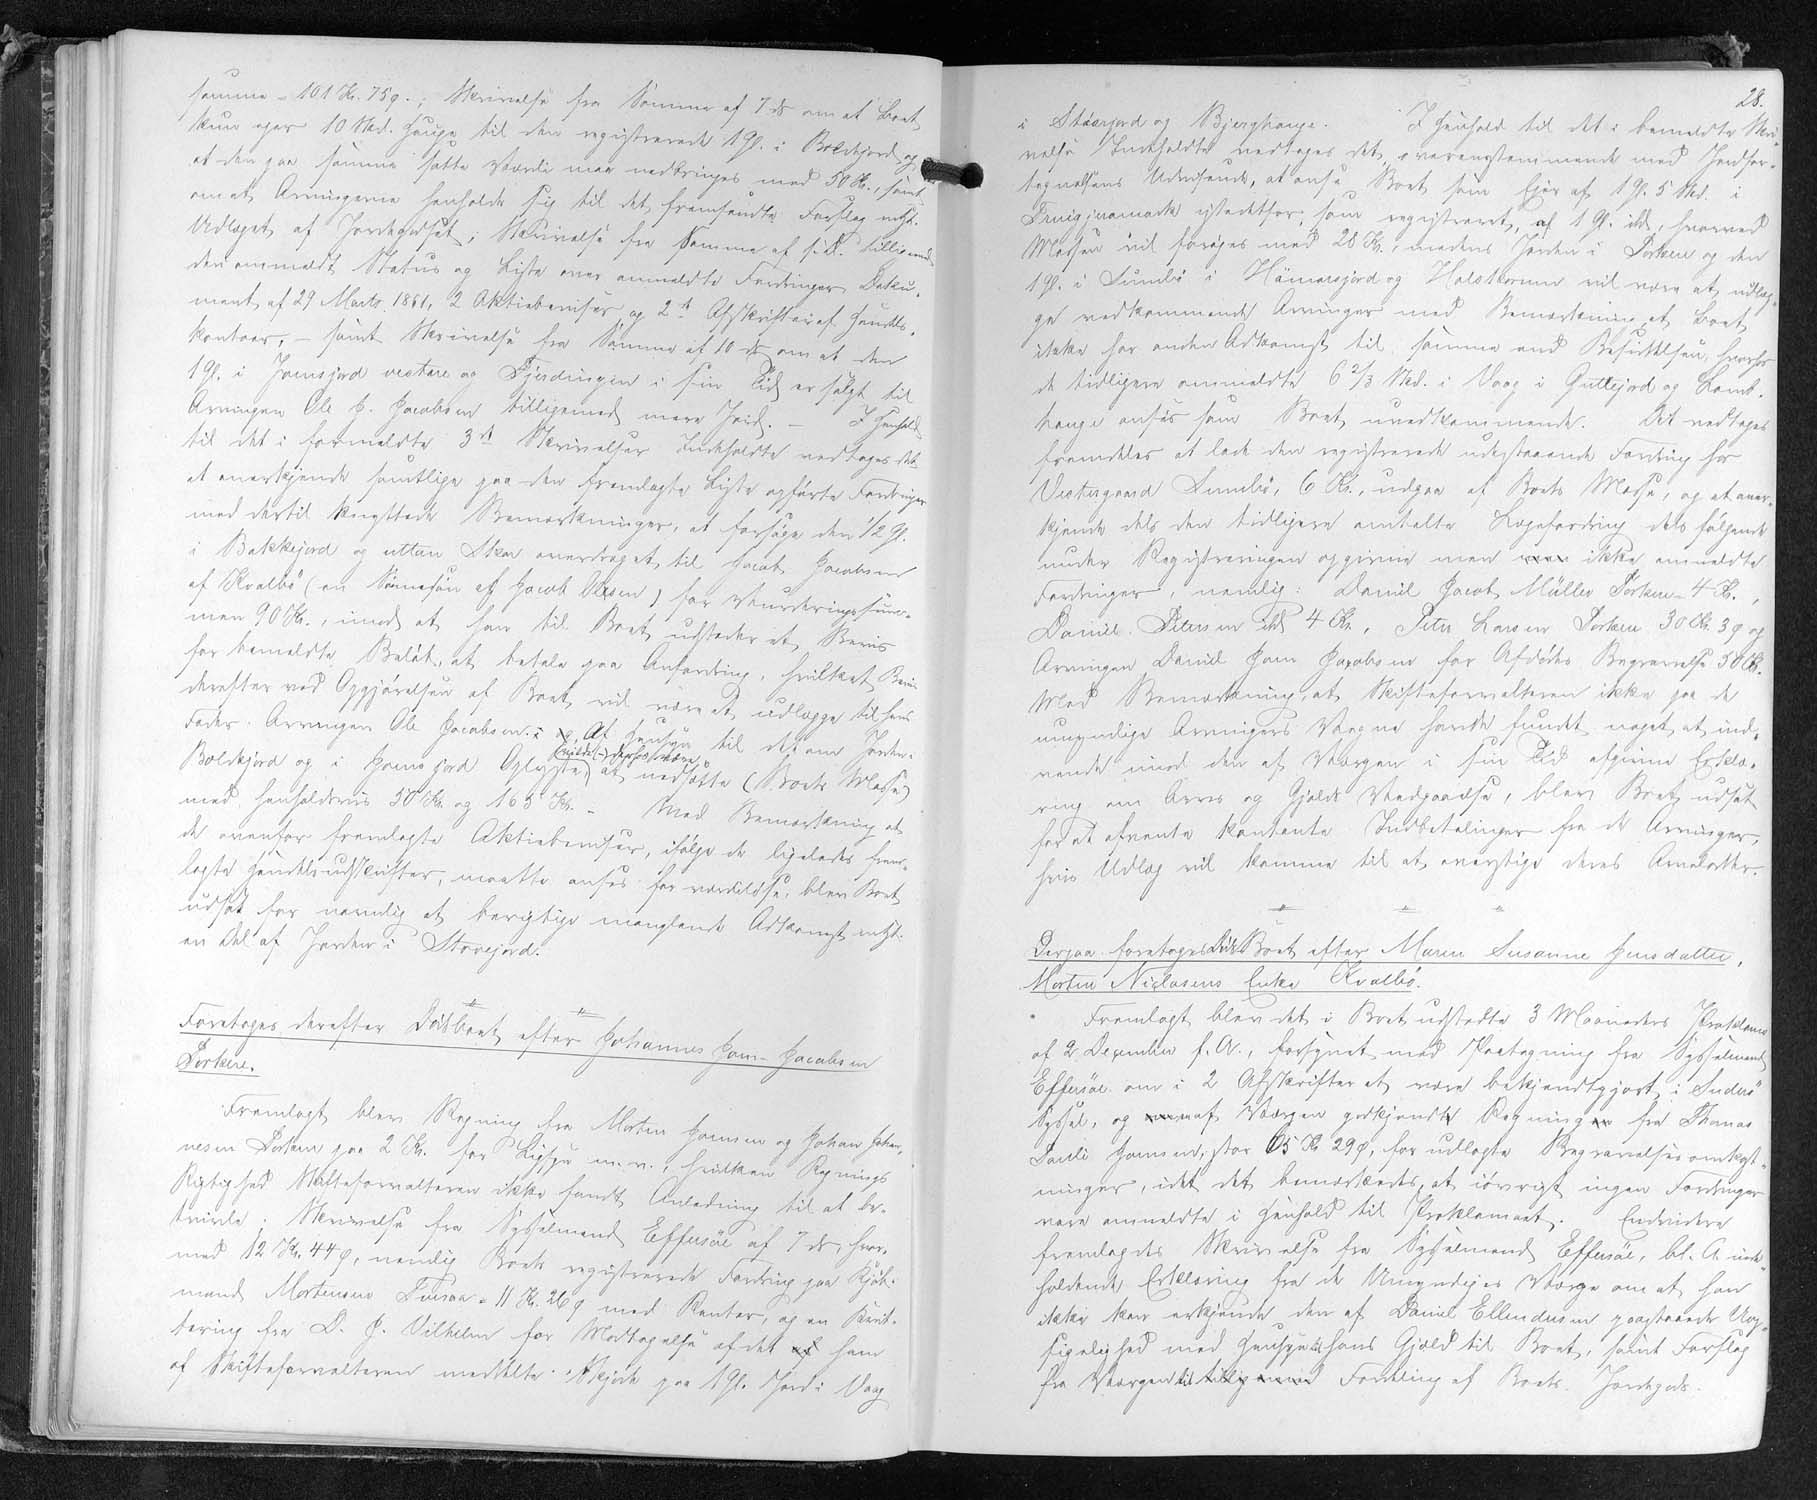 samme = 101 Kr. 75 ø.; Skrivelse fra Samme af 7 ds om at Boet
kun ejer 10 Skd. Hauge til den registrerede 1 Gl. i Bolekjord og
at den paa samme satte Værdi maa nedbringes med 50 Kr., samt
om at Arvingerne henholde sig til det fremsendte Forslag mht.
Udlæget af Jordegodset; Skrivelse fra Samme af s. D. tilligemed
den ommeldte Status og Liste over anmeldte Fordringer, Doku-
ment af 29 Marts 1861, 2 Aktiebeviser og 2 Afskrifter af Handels-
kontoer, – samt Skrivelse fra Samme af 10 ds om at den
1 Gl. i Jomsjord vestare og Fjerdingen i sin Tid er solgt til
Arvingen Ole J. Jacobsen tilligemed mere Jord. – I Henhold
til det i formeldte 3 Skrivelser Indeholdte vedtoges det
at anerkjende samtlige paa den fremlagte Liste opførte Fordringer
med dertil knyttede Bemærkninger, at forsøge den 1/2 Gl.
i Bakkejord og uttan Skor overdraget til Jacob Jacobsen
af Kvalbø (en Sønnesøn af Jacob Olesen) for Vurderingssum-
men 90 Kr., imod at han til Boet udsteder et Bevis
for bemeldte Beløb, at betale paa Anfordring, hvilket Bevis
derefter ved Opgjørelsen af Boet vil være at udlægge til hans
Fader Arvingen Ole Jacobsen; Af Hensyn til det om Jorden i
Bolekjord og i Homsjord Oplyste, at nedsætte (Boets Masse)
med henholdsvis 50 Kr. og 165 Kr. – Med Bemærkning at
de ovenfor fremlagte Aktiebeviser, ifølge de ligeledes frem-
lagte Handelsudskrifter, maatte anses for værdiløse, blev Boet
udsat for nemlig at berigtige manglende Adkomst mht.
en Del af Jorden i Storejord.
Foretoges derefter Dødsboet efter Johannes Joen Jacobsen
Porkere.
Fremlagt blev Regning fra Morten Joensen og Johan Johan-
nesen Porkere paa 2 Kr. for Ligsyn m. v., hvilken Regnings
Rigtighed Skifteforvalteren ikke fandt Anledning til at be-
tvivle; Skrivelse fra Sysselmand Effersøe af 7 ds, hvor-
med 12 Kr. 44 ø, nemlig Boets registrerede Fordring paa Kjøb-
mand Mortensen Tværaa = 11 Kr. 26 ø med Renter, og en Kvit-
tering fra D. J. Vilhelm for Modtagelse af det ham
af Skifteforvalteren meddelte Skjøde paa 1 Gl. Jord i Vaag
28.
i Støerjord og Bjerghauge. I Henhold til det i bemeldte Skri-
velse Indeholdte vedtoges det, overensstemmende med Jordfor-
tegnelsens Udvisende, at anse Boet som Ejer af 1 Gl. 5 Skd. i
istedetfor, som registreret, af 1 Gl. ibd., hvorved
Massen vil forøges med 28 Kr., medens Jorden i Porkere og den
1 Gl. i Sumbø i Hamarsjord og vil være at udlæg-
ge vedkommende Arvinger med Bemærkning, at Boet
ikke har anden Adkomst til samme end Besiddelsen, hvorfor
de tidligere ommeldte 6 2/3 Skd. i Vaag i Gullejord og Lamb-
hauge anses som Boet uvedkommende. Det vedtoges
fremdeles at lade den registrerede udestaaende Fordring hos
Vestergaard Sumbø, 6 Kr., udgaa af Boets Masse, og at aner-
kjende dels den tidligere omtalte Lægefordring dels følgende
under Registreringen opgivne men ikke anmeldte
Fordringer, nemlig: Daniel Jacob Müller Porkere = 4 Kr.,
Daniel Petersen ibd 4 Kr., Peter Larsen Porkere 30 Kr. 3 ø og
Arvingen Daniel Joen Jacobsen for Afdødes Begravelse 50 Kr.
Med Bemærkning, at Skifteforvalteren ikke paa de
umyndige Arvingers Vegne havde fundet noget at ind-
vende imod den af Værgen i sin Tid afgivne Erklæ-
ring om Arvs og Gjælds Vedgaaelse, blev Boet udsat
for at afvente kontante Indbetalinger fra de Arvinger,
hvis Udlæg vil komme til at overstige deres Arvelodder.
Derpaa foretoges Dødsboet efter Maren Susanne Jensdatter,
Morten Niclasens Enke Kvalbø.
Fremlagt blev det i Boet udstedte 3 Maaneders Proklama
af 2 December f. A., forsynet med Paategning fra Sysselmand
Effersøe om i 2 Afskrifter at være bekjendtgjort i Suderø
Syssel, og af Værgen godkjendt Regning fra Thomas
Pauli Joensen, stor 65 Kr 29 ø, for udlagte Begravelsesomkost-
ninger, idet det bemærkedes, at iøvrigt ingen Fordringer
vare anmeldte i Henhold til Proklamaet. Endvidere
fremlagdes Skrivelse fra Sysselmand Effersøe, bl. A. inde-
holdende Erklæring fra de Umyndiges Værge om at han
ikke kan erkjende den af Daniel Ellendersen paastaaede Uop-
sigelighed med Hensyn til hans Gjæld til Boet, samt Forslag
fra Værgen til Fordeling af Boets Jordegods.